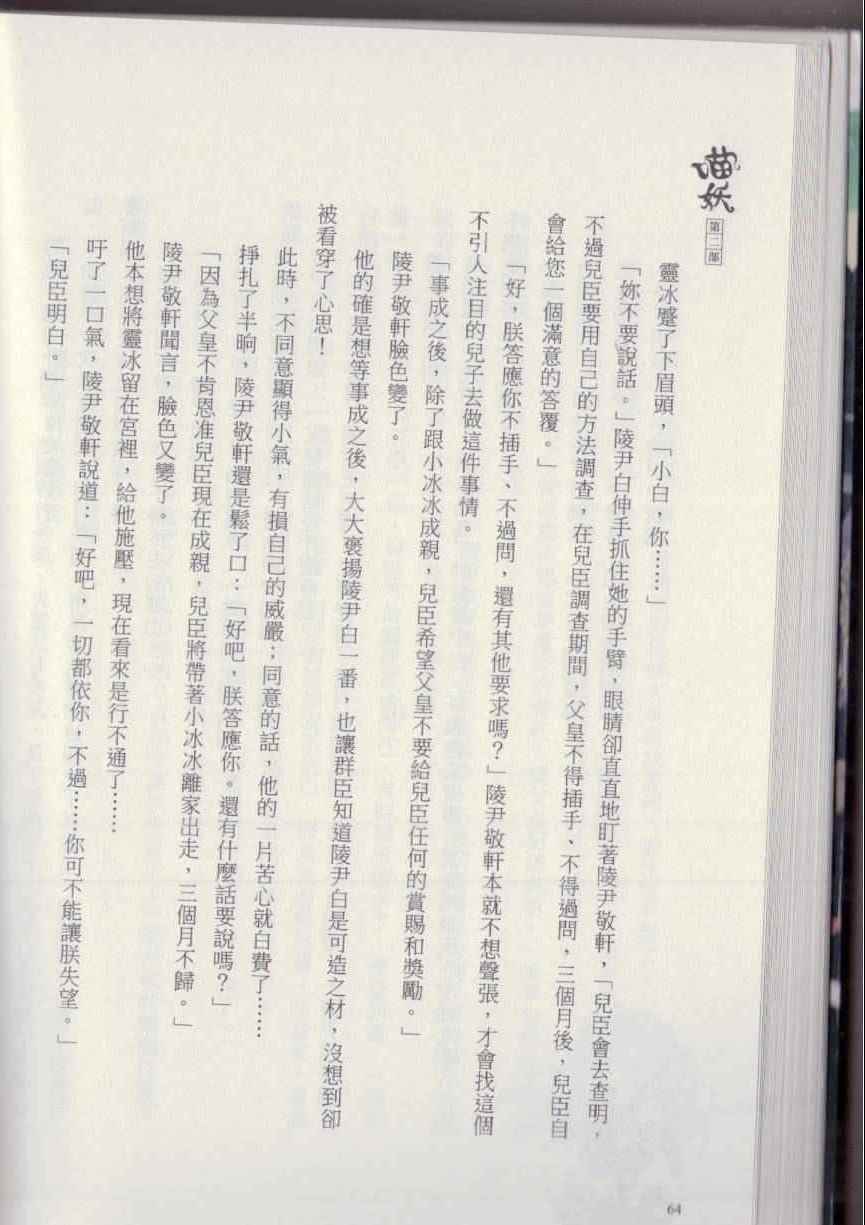 喵妖
第二部
靈冰蹙了下眉頭，「小白，你……」
「妳不要說話。」陵尹白伸手抓住她的手臂，眼睛卻直直地盯著陵尹敬軒，「兒臣會去查明，
不過兒臣要用自己的方法調查，在兒臣調查期間，父皇不得插手、不得過問，三個月後，兒臣自
會給您一個滿意的答覆。」
「好，朕答應你不插手、不過問，還有其他要求嗎？」陵尹敬軒本就不想聲張，才會找這個
不引人注目的兒子去做這件事情。
「事成之後，除了跟小冰冰成親，兒臣希望父皇不要給兒臣任何的賞賜和獎勵。」
陵尹敬軒臉色變了。
他的確是想等事成之後，大大褒揚陵尹白一番，也讓群臣知道陵尹白是可造之材，沒想到卻
被看穿了心思！
此時，不同意顯得小氣，有損自己的威嚴；同意的話，他的一片苦心就白費了……
掙扎了半晌，陵尹敬軒還是鬆了口：「好吧，朕答應你。還有什麼話要說嗎？」
「因為父皇不肯恩准兒臣現在成親，兒臣將帶著小冰冰離家出走，三個月不歸。」
陵尹敬軒聞言，臉色又變了。
他本想將靈冰留在宮裡，給他施壓，現在看來是行不通了……
吁了一口氣，陵尹敬軒說道：「好吧，一切都依你，不過……你可不能讓朕失望。」
「兒臣明白。」
64